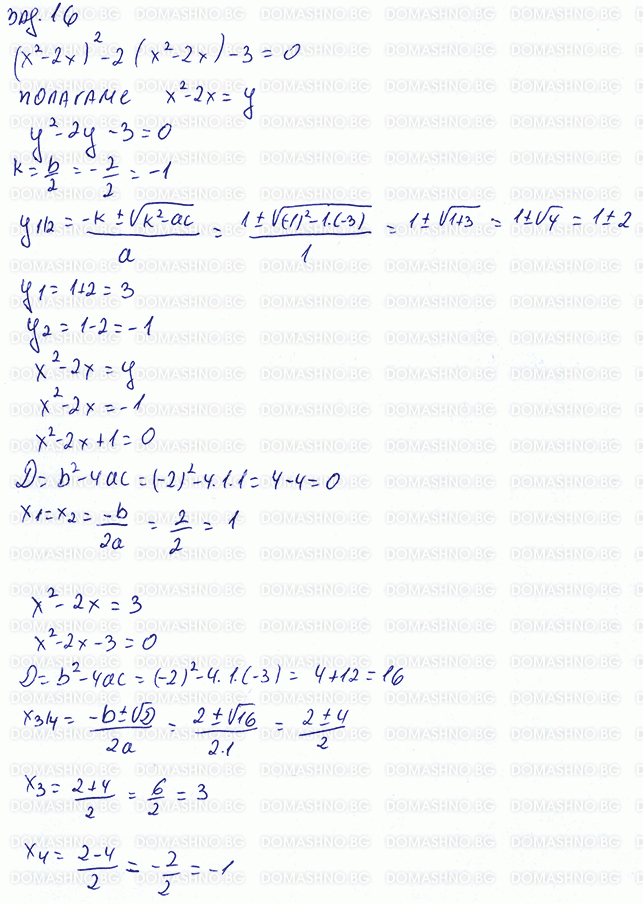 зад. 16
(x²-2x)²-2(x²-2x)-3=0
полагаме x²-2x=y
y²-2y-3=0
k=b/2=-2/2=-1
y1/2=(-k±√(k²-ac))/a=(1±√((-1)²-1.(-3)))/1=1±√(1+3)=1±√4=1±2
y1=1+2=3
y2=1-2=-1
x²-2x=y
x²-2x=-1
x²-2x+1=0
D=b²-4ac=(-2)²-4.1.1=4-4=0
x1=x2=-b/2a=2/2=1
x²-2x=3
x²-2x-3=0
D=b²-4ac=(-2)²-4.1.(-3)=4+12=16
x3/4=(-b±√D)/2a=(2±√16)/2.1=(2±4)/2
x3=(2+4)/2=6/2=3
x4=(2-4)/2=-2/2=-1
DOMASHNO.BG